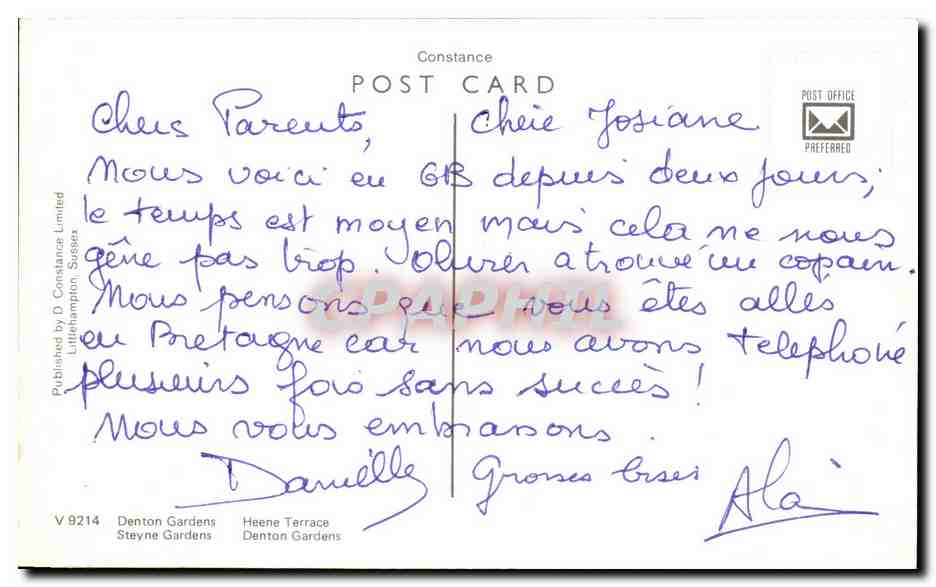 Constance
POST CARD
POST OFFICE
PREFERRED
Chers Parents, Chère Josiane
Nous voici en GB depuis deux jours,
le temps est moyen mais cela ne nous
gêne pas trop. Olivier a trouvé un copain.
Nous pensons que vous êtes allés
en Bretagne car nous avons telephoné
plusieurs fois sans succès !
Nous vous embrassons.
Danielle Grosses bises Alain
Published by D Constance Limited
Littlehampton, Sussex
CPAPHIL
V 9214 Denton Gardens Heene Terrace
Steyne Gardens Denton Gardens